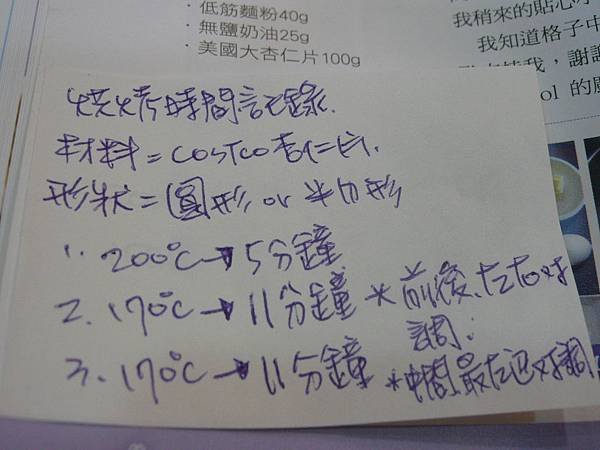 · 低筋麵粉40g
· 無鹽奶油25g
· 美國大杏仁片100g
我稍來的貼心
我知道格子中
我，謝謝
ol 的
燒烤時間記錄.
材料=COSTCO杏仁片.
形狀=圓形 or 半切形
1. 200℃→5分鐘
2. 170℃→11分鐘 *前後、左右對
調.
3. 170℃→11分鐘 *中間最左邊對調